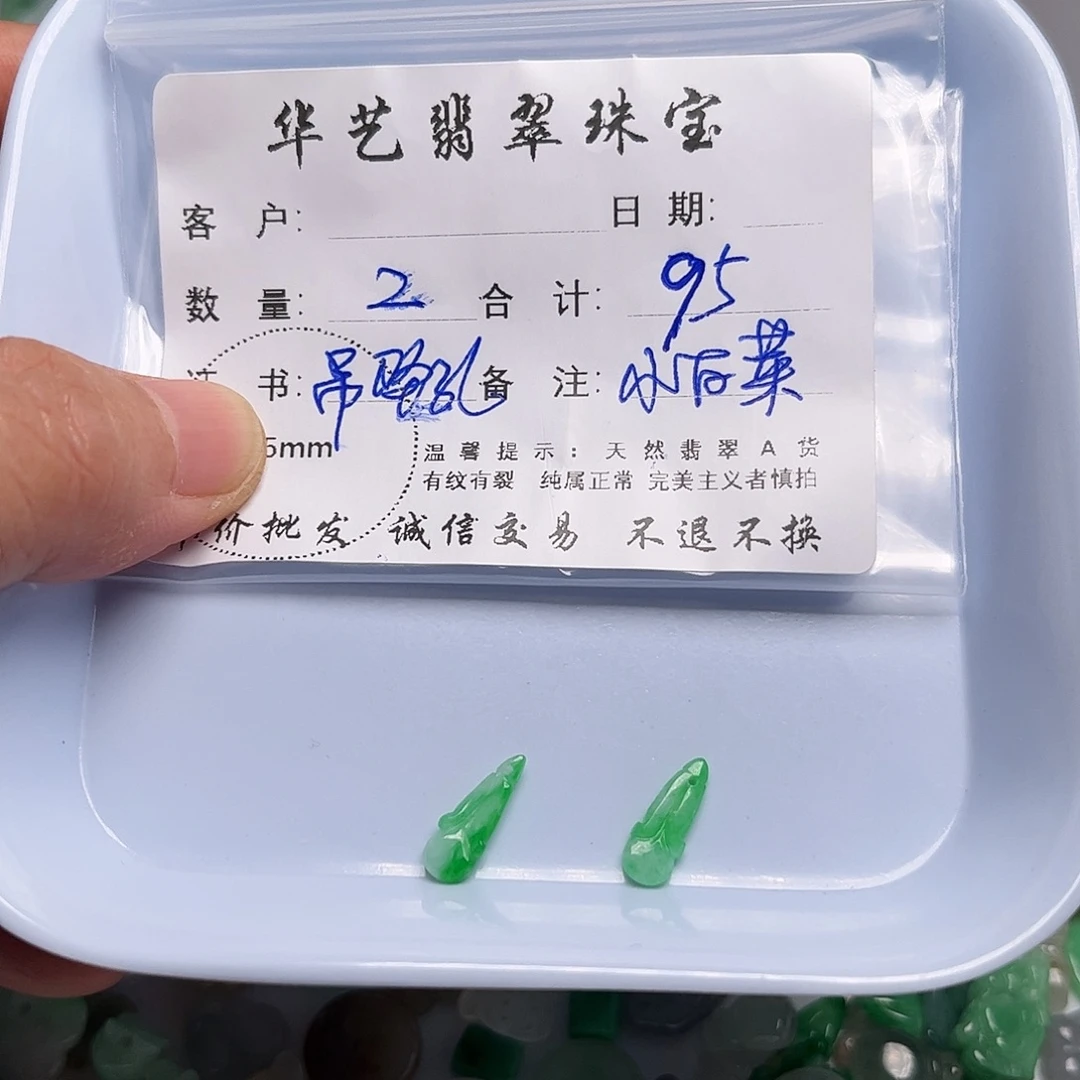 华艺翡翠珠宝
客 户: 日 期:
数 量: 2 合 计: 95
书: 吊 孔 备 注: 小白菜
5mm 温馨提示: 天然翡翠A货
有纹有裂 纯属正常 完美主义者慎拍
价批发 诚信交易 不退不换